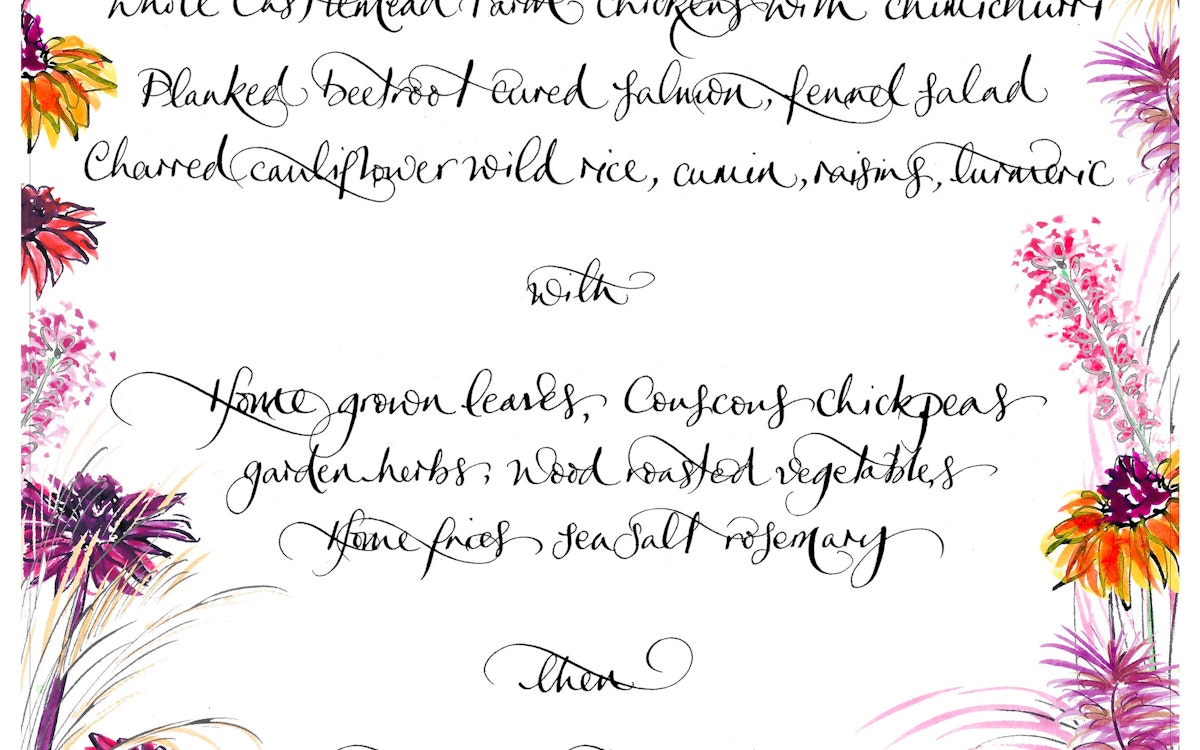 Whole Castlemead Farm chickens with chimichurri
Planked beetroot cured salmon, fennel salad
Charred cauliflower wild rice, cumin, raisins, turmeric
with
Home grown leaves, Couscous chickpeas
garden herbs, Wood roasted vegetables
Home fries sea salt rosemary
then